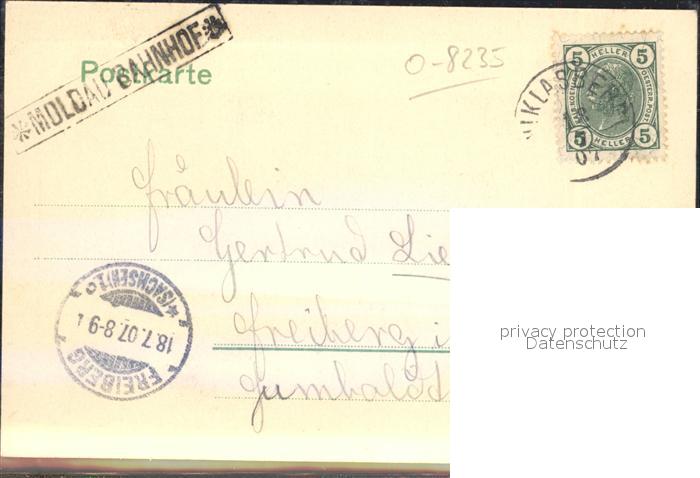 * MOLDAU BAHNHOF *
Postkarte
O-8235
NIKLASBERG
07
5 HELLER 5
KAIS. KOENIGL. OESTERR. POST
5 HELLER 5
Fräulein
Gertrud Lie
Freiberg i
FREIBERG
18.7.07.8-9
*(SACHSEN)1c
privacy protection
Datenschutz